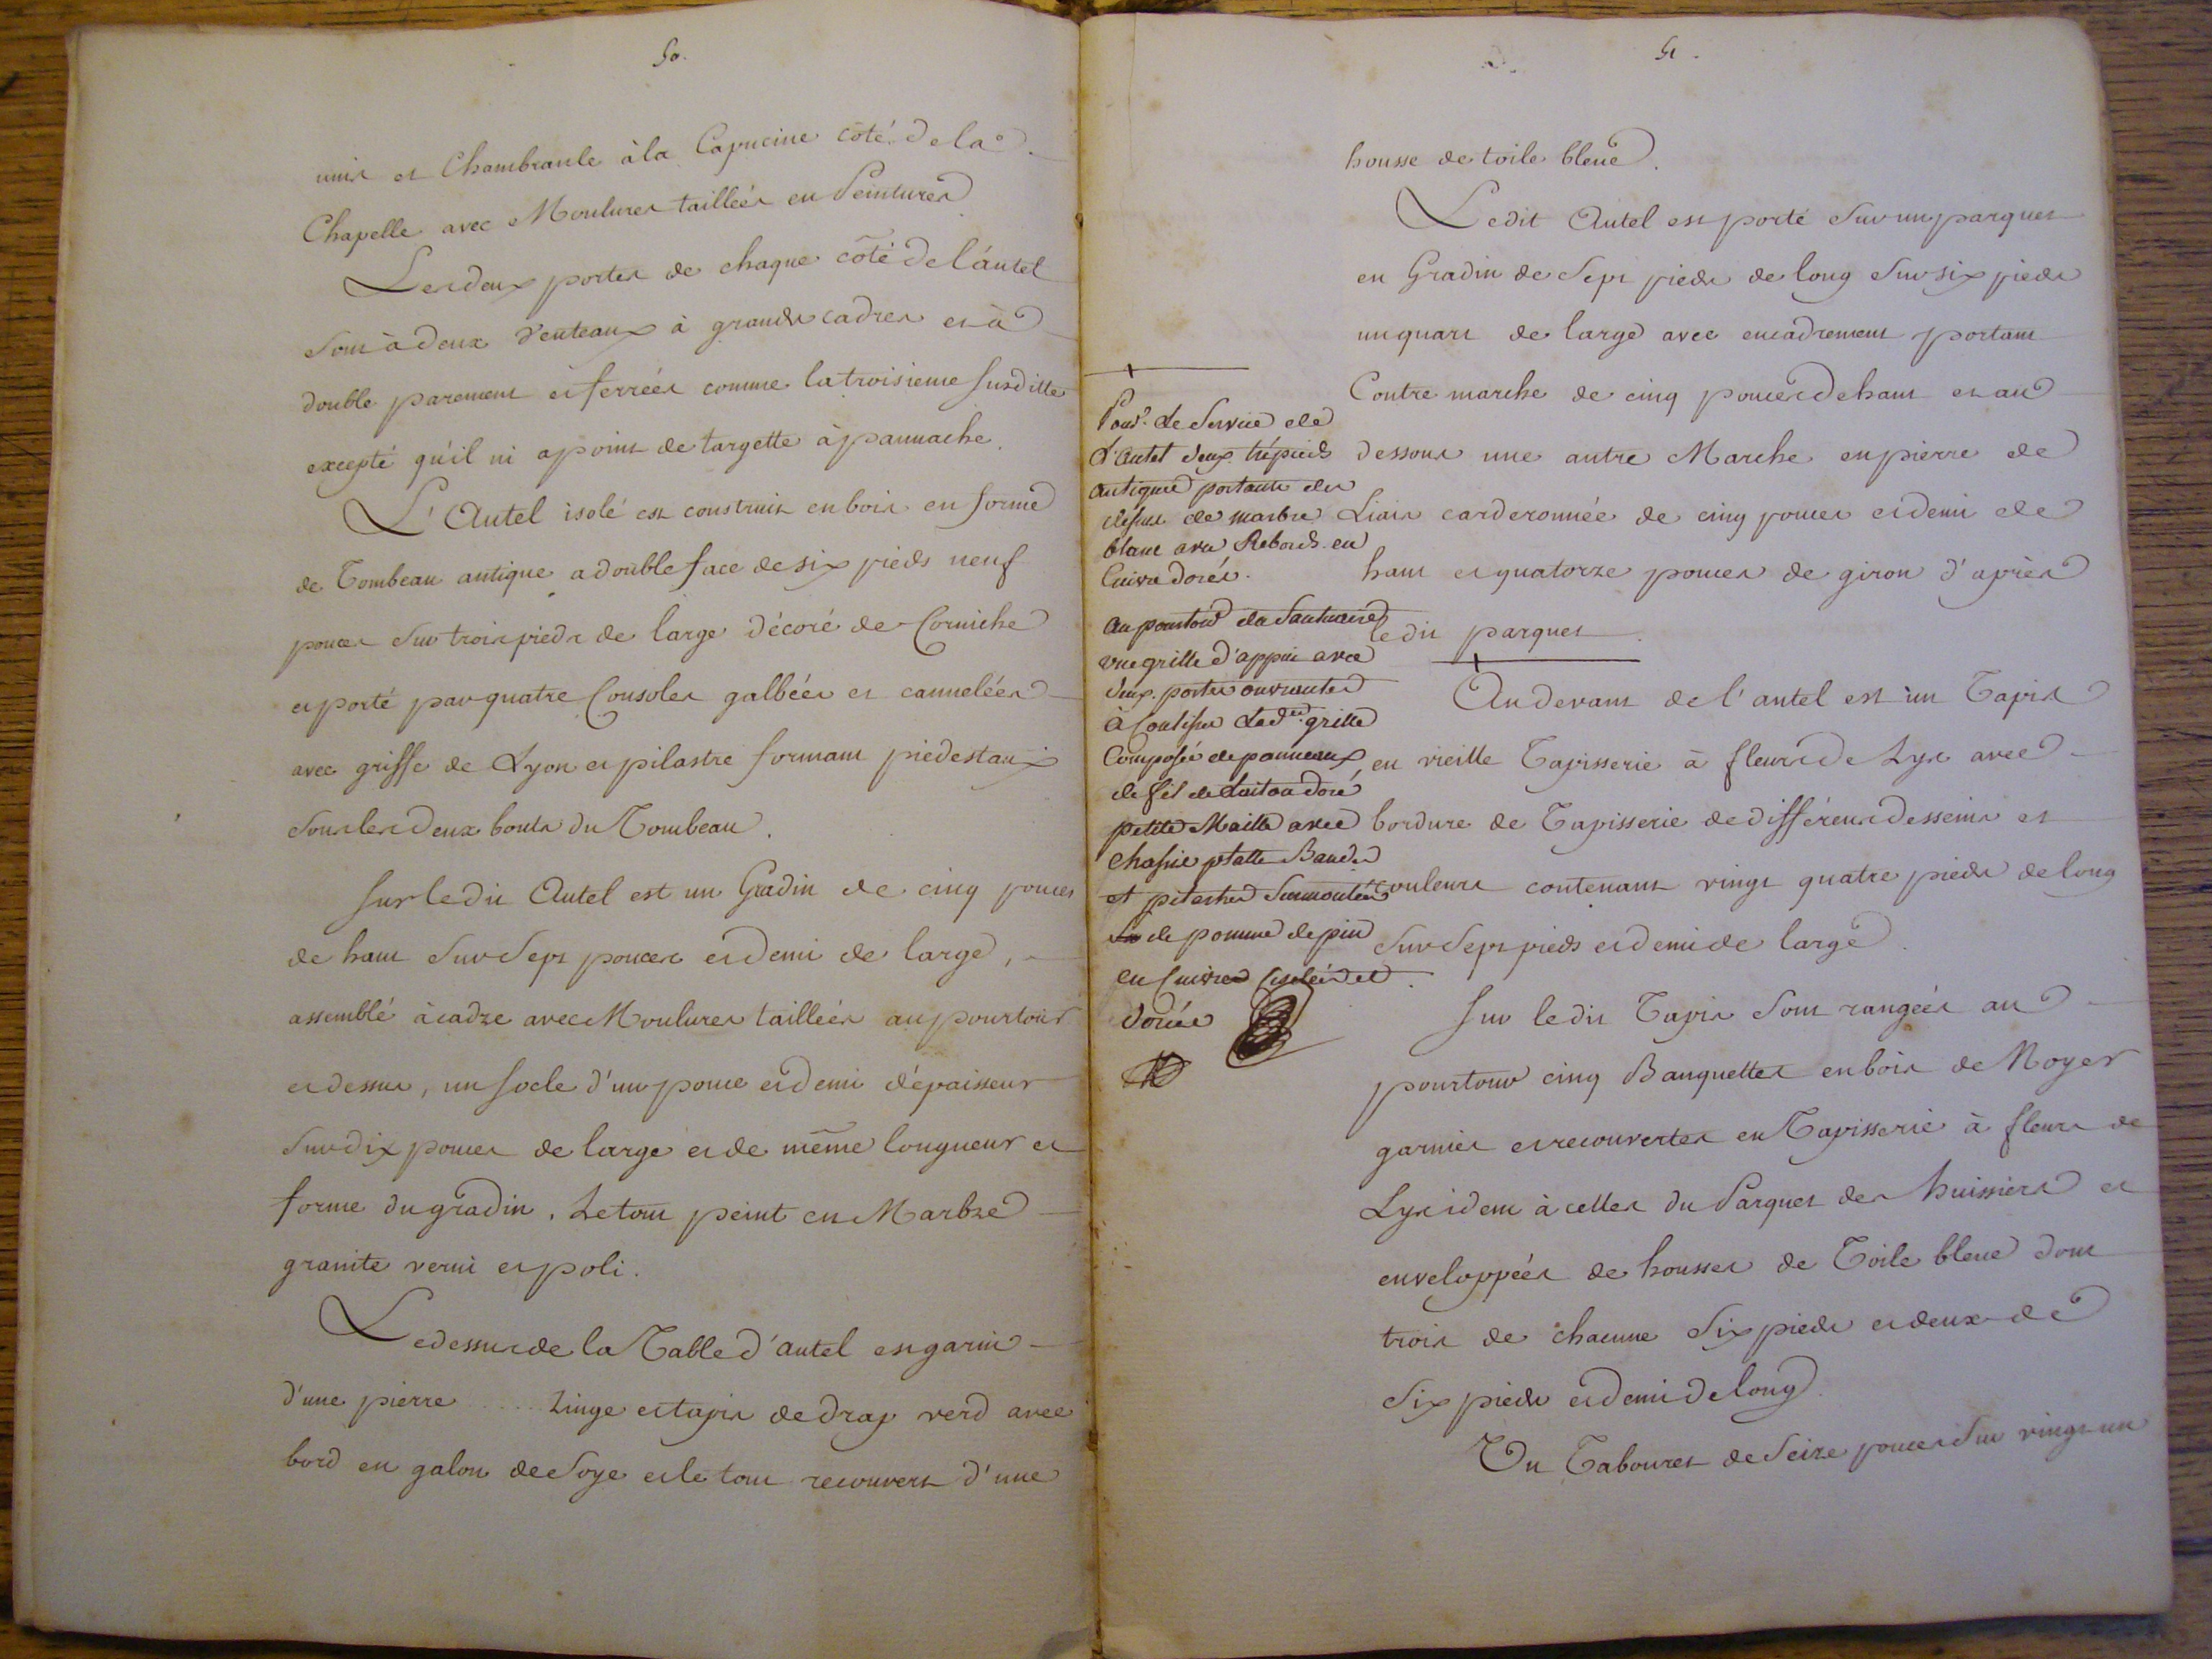 50.
unis et Chambranle à la Capucine côté de la
Chapelle avec Moulures taillées en Peintures
Les deux portes de chaque côté de l'autel
sont à deux Venteaux à grands cadres et à
double parement et ferrées comme la troisieme susditte
excepté qu'il ni a point de targette à pannache.
L'Autel isolé est construit en bois en forme
de Tombeau antique a double face de six pieds neuf
pouces sur trois pieds de large décoré de Corniche
et porté par quatre Consoles galbées et cannelées
avec griffe de Lyon et pilastre formant piedestaux
sous les deux bouts du Tombeau.
Sur le dit Autel est un Gradin de cinq pouces
de haut sur sept pouces et demi de large,
assemblé à cadre avec Moulures taillées au pourtour
et dessus, un Socle d'un pouce et demi d'épaisseur
sur dix pouces de large et de même longueur et
forme du gradin. Le tout peint en Marbre
granite verni et poli.
Le dessus de la Table d'autel est garni
d'une pierre ..... Linge et tapis de drap verd avec
bord en galon de Soye et le tout recouvert d'une
51.
housse de toile bleue.
Ledit Autel est porté sur un parquet
en Gradin de Sept pieds de long sur six pieds
un quart de large avec encadrement portant
Contre marche de cinq pouces de haut et au
dessous une autre Marche en pierre de
Liais carderonnée de cinq pouces et demi de
haut et quatorze pouces de giron d'après
le dit parquet.
Au devant de l'autel est un Tapis
en vieille Tapisserie à fleurs de Lys avec
bordure de Tapisserie de différents desseins et
couleurs contenant vingt quatre pieds de long
sur Sept pieds et demi de large.
Sur le dit Tapis sont rangées au
pourtour cinq Banquettes en bois de Noyer
garnies et recouvertes en Tapisserie à fleurs de
Lys idem à celles du Parquet des huissiers et
enveloppées de housses de Toile bleue dont
trois de chacune six pieds et deux de
six pieds et demi de long.
Un Tabouret de Seize pouces sur vingt un
Pour le Service de
L'autel deux trépieds
antiques portants des
dessus de marbre
blanc avec Rebords en
Cuivre dorés.
Au pourtour du Sanctuaire
une grille d'appui avec
deux portes ouvrantes
à Coulisse Lad. grille
Composée de panneaux
de fil de Laiton doré,
petite Maille avec
chassis platte Bandes
et pilastres Surmontées
de pomme de pin
en Cuivre Ciselées et
dorées